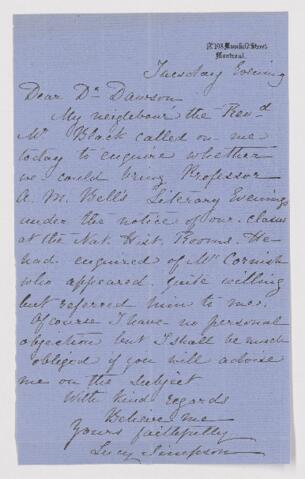 Mansfield Street
Montreal.
Tuesday Evening
Dear Dr Dawson
My neighbour the Revd
Mr Black called on me
today to enquire whether
we could bring Professor
A. M. Bell's Literary Evenings
under the notice of our classes
at the Nat. Hist. Rooms. He
had enquired of Mr Cornish
who appeared quite willing
but referred him to me.
Of course I have no personal
objection but I shall be much
obliged if you will advise
me on the subject
With kind regards
Believe me
Yours faithfully
Lucy Simpson